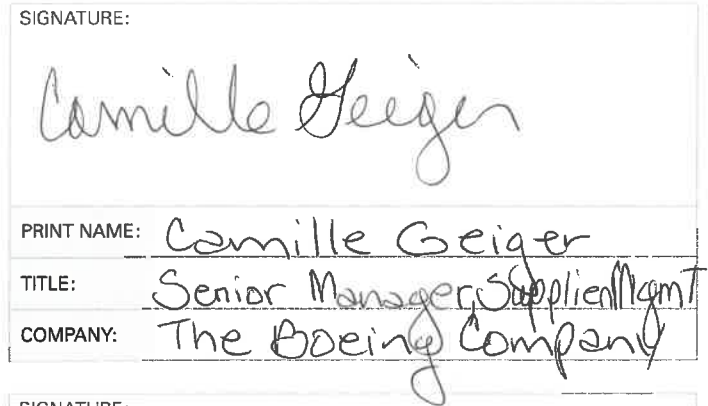 SIGNATURE:
Camille Geiger
PRINT NAME: Camille Geiger
TITLE: Senior Manager, Supplier Mgmt
COMPANY: The Boeing Company
SIGNATURE: